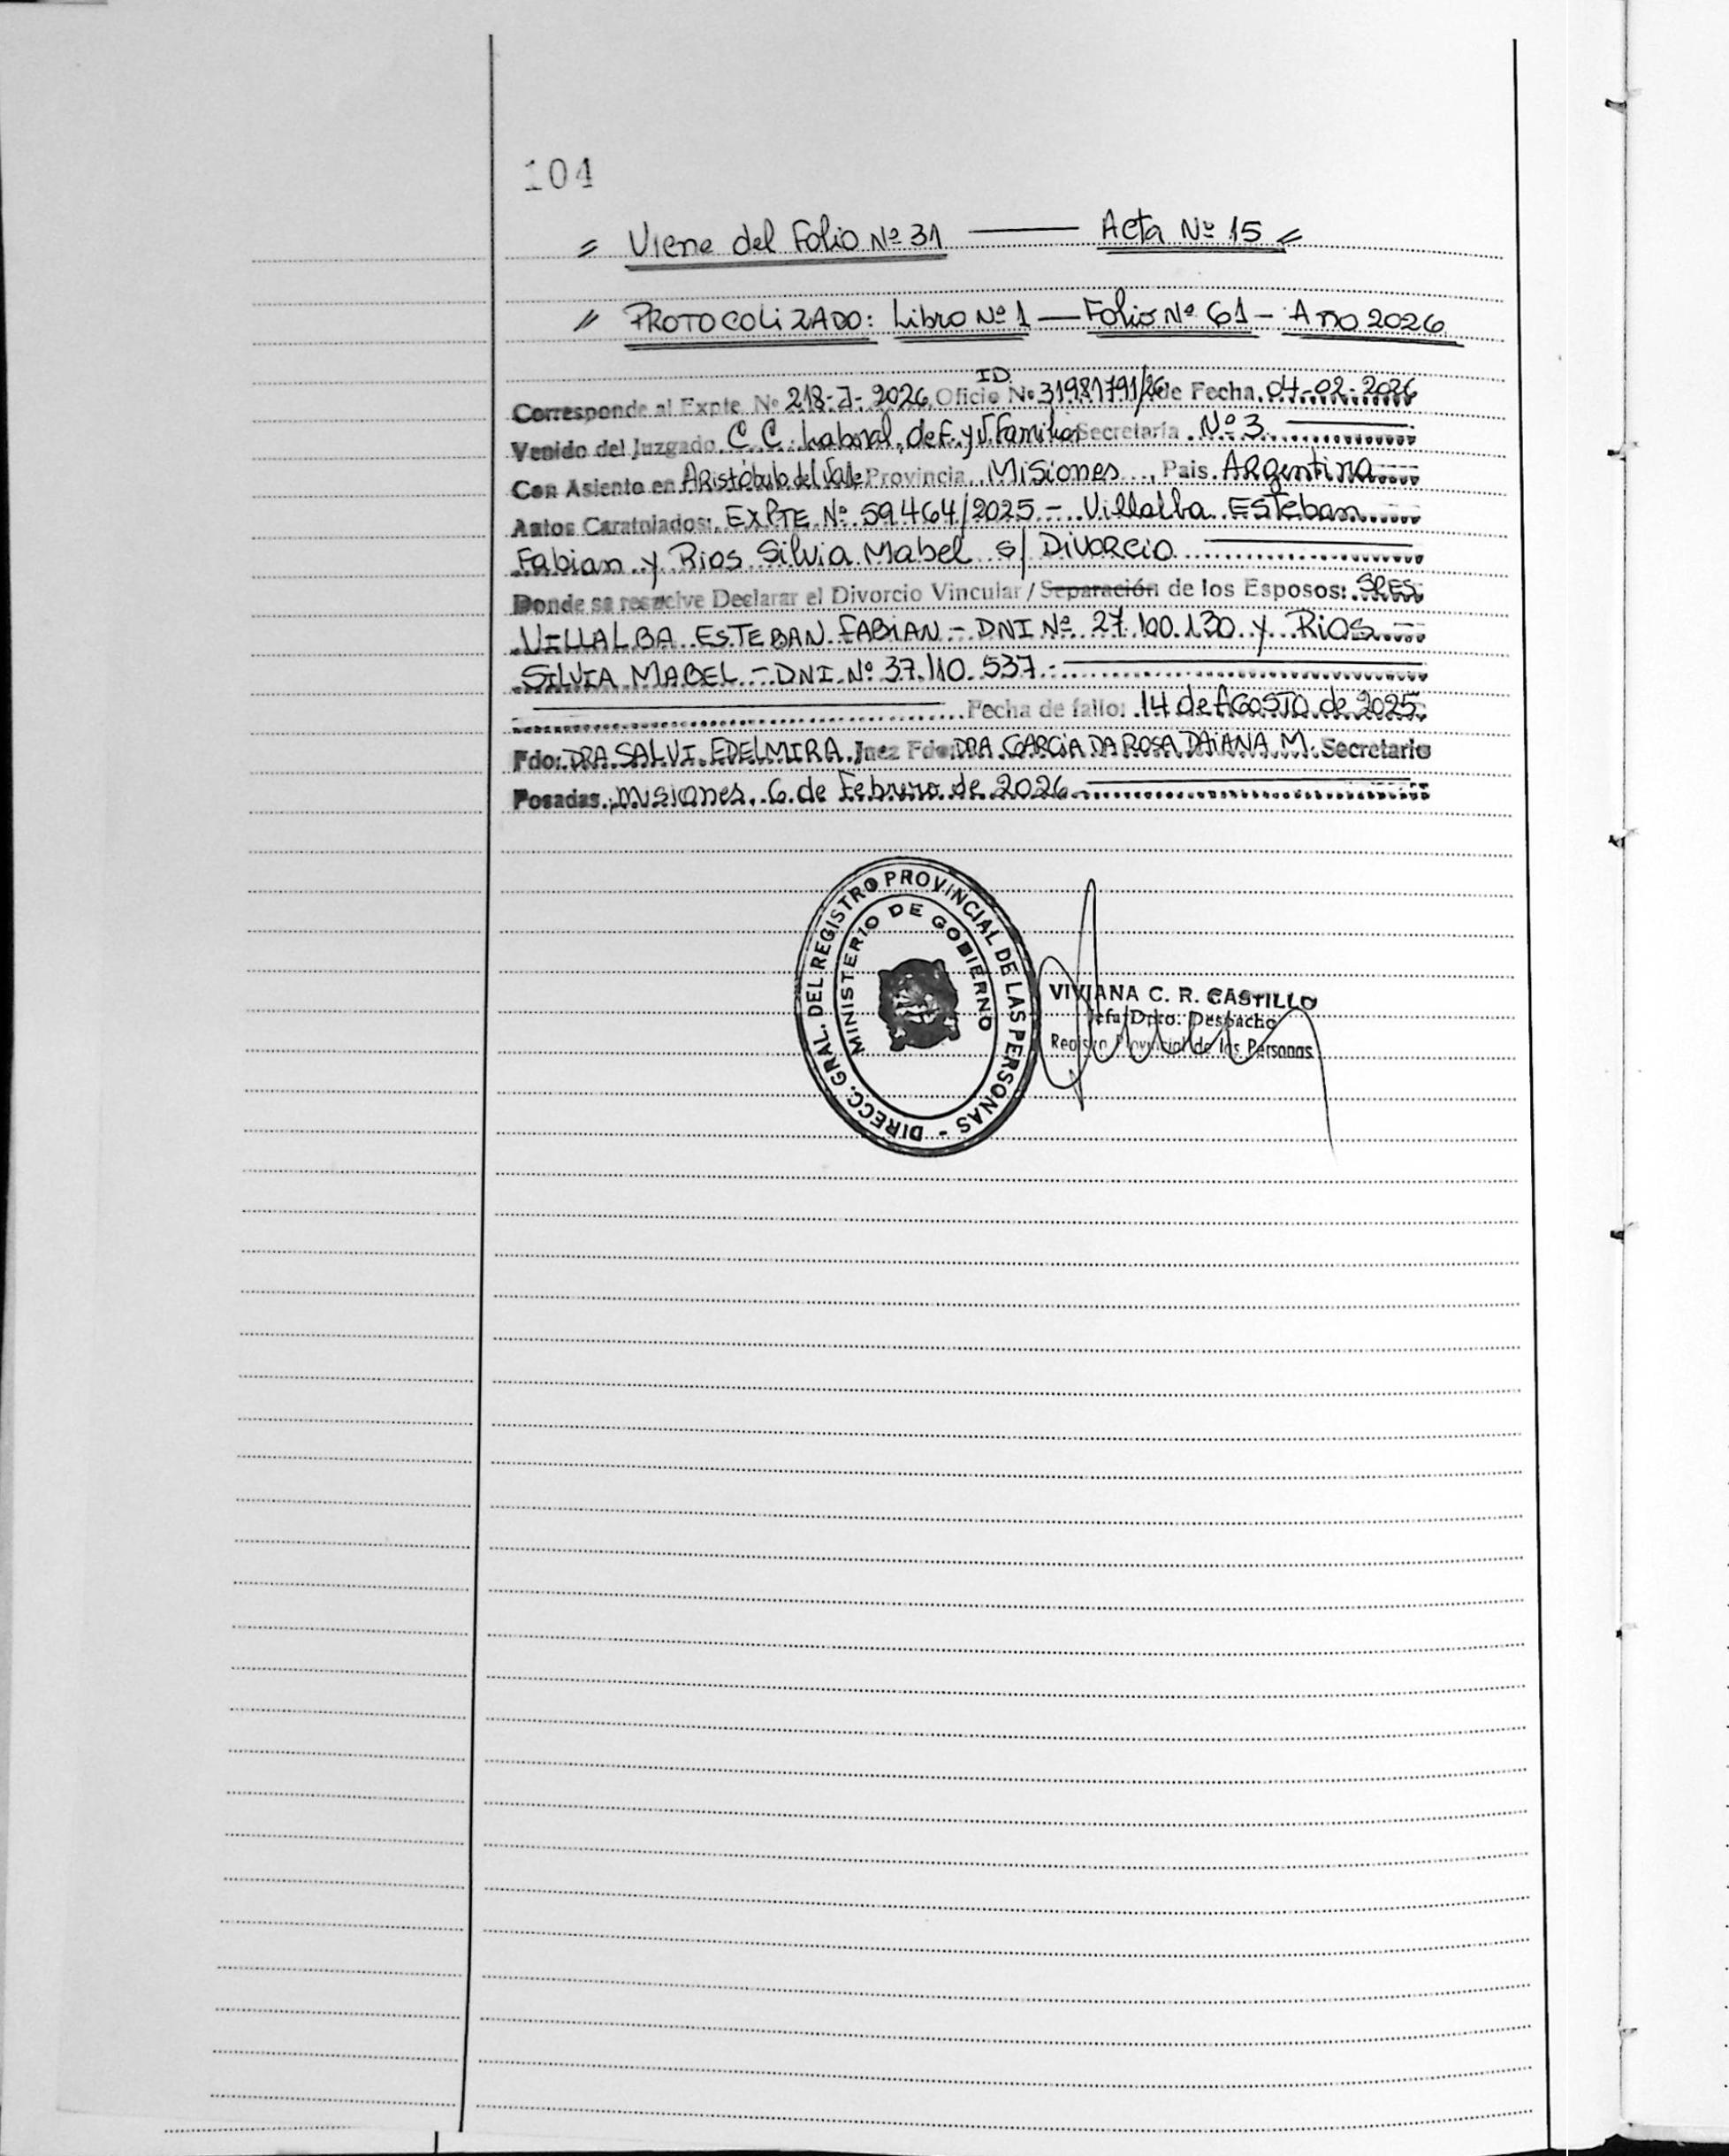 104
= Viene del Folio Nº 31 —— Acta Nº 15 =
// PROTOCOLIZADO: Libro Nº 1 — Folio Nº 61 - Año 2026
ID
Corresponde al Expte. Nº 218-J-2026 Oficio Nº 31981791/26 de Fecha 04-02-2026
Venido del Juzgado C.C. Laboral, de F. y V. Familiar Secretaría Nº 3
Con Asiento en Aristóbulo del Valle Provincia Misiones, Pais. Argentina
Autos Caratulados: EXPTE Nº 59464/2025 - Villalba Esteban
Fabian y Rios Silvia Mabel s/ Divorcio
Donde se resuelve Declarar el Divorcio Vincular / Separación de los Esposos: SRES
VILLALBA ESTEBAN FABIAN - DNI Nº 27.100.130 y RIOS -
SILVIA MABEL - DNI Nº 37.110.537 -
Fecha de fallo: 14 de AGOSTO de 2025
Fdo: DRA. SALVI EDELMIRA Juez Fdo: DRA. GARCIA DA ROSA DAIANA M. Secretario
Posadas, Misiones, 6 de Febrero de 2026
DIRECC. GRAL. DEL REGISTRO PROVINCIAL DE LAS PERSONAS -
MINISTERIO DE GOBIERNO
VIVIANA C. R. CASTILLO
Jefa Dpto. Despacho
Registro Provincial de las Personas